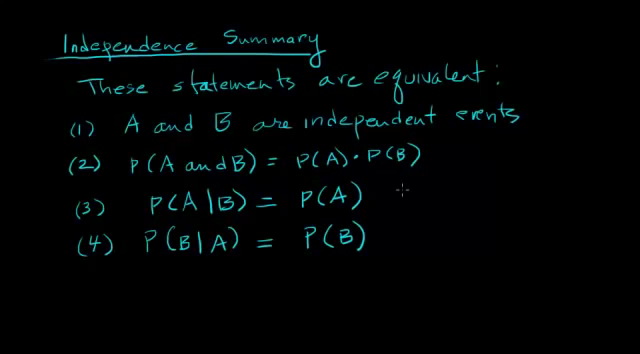 Independence Summary
These statements are equivalent:
(1) A and B are independent events
(2) P(A and B) = P(A) · P(B)
(3) P(A|B) = P(A)
(4) P(B|A) = P(B)